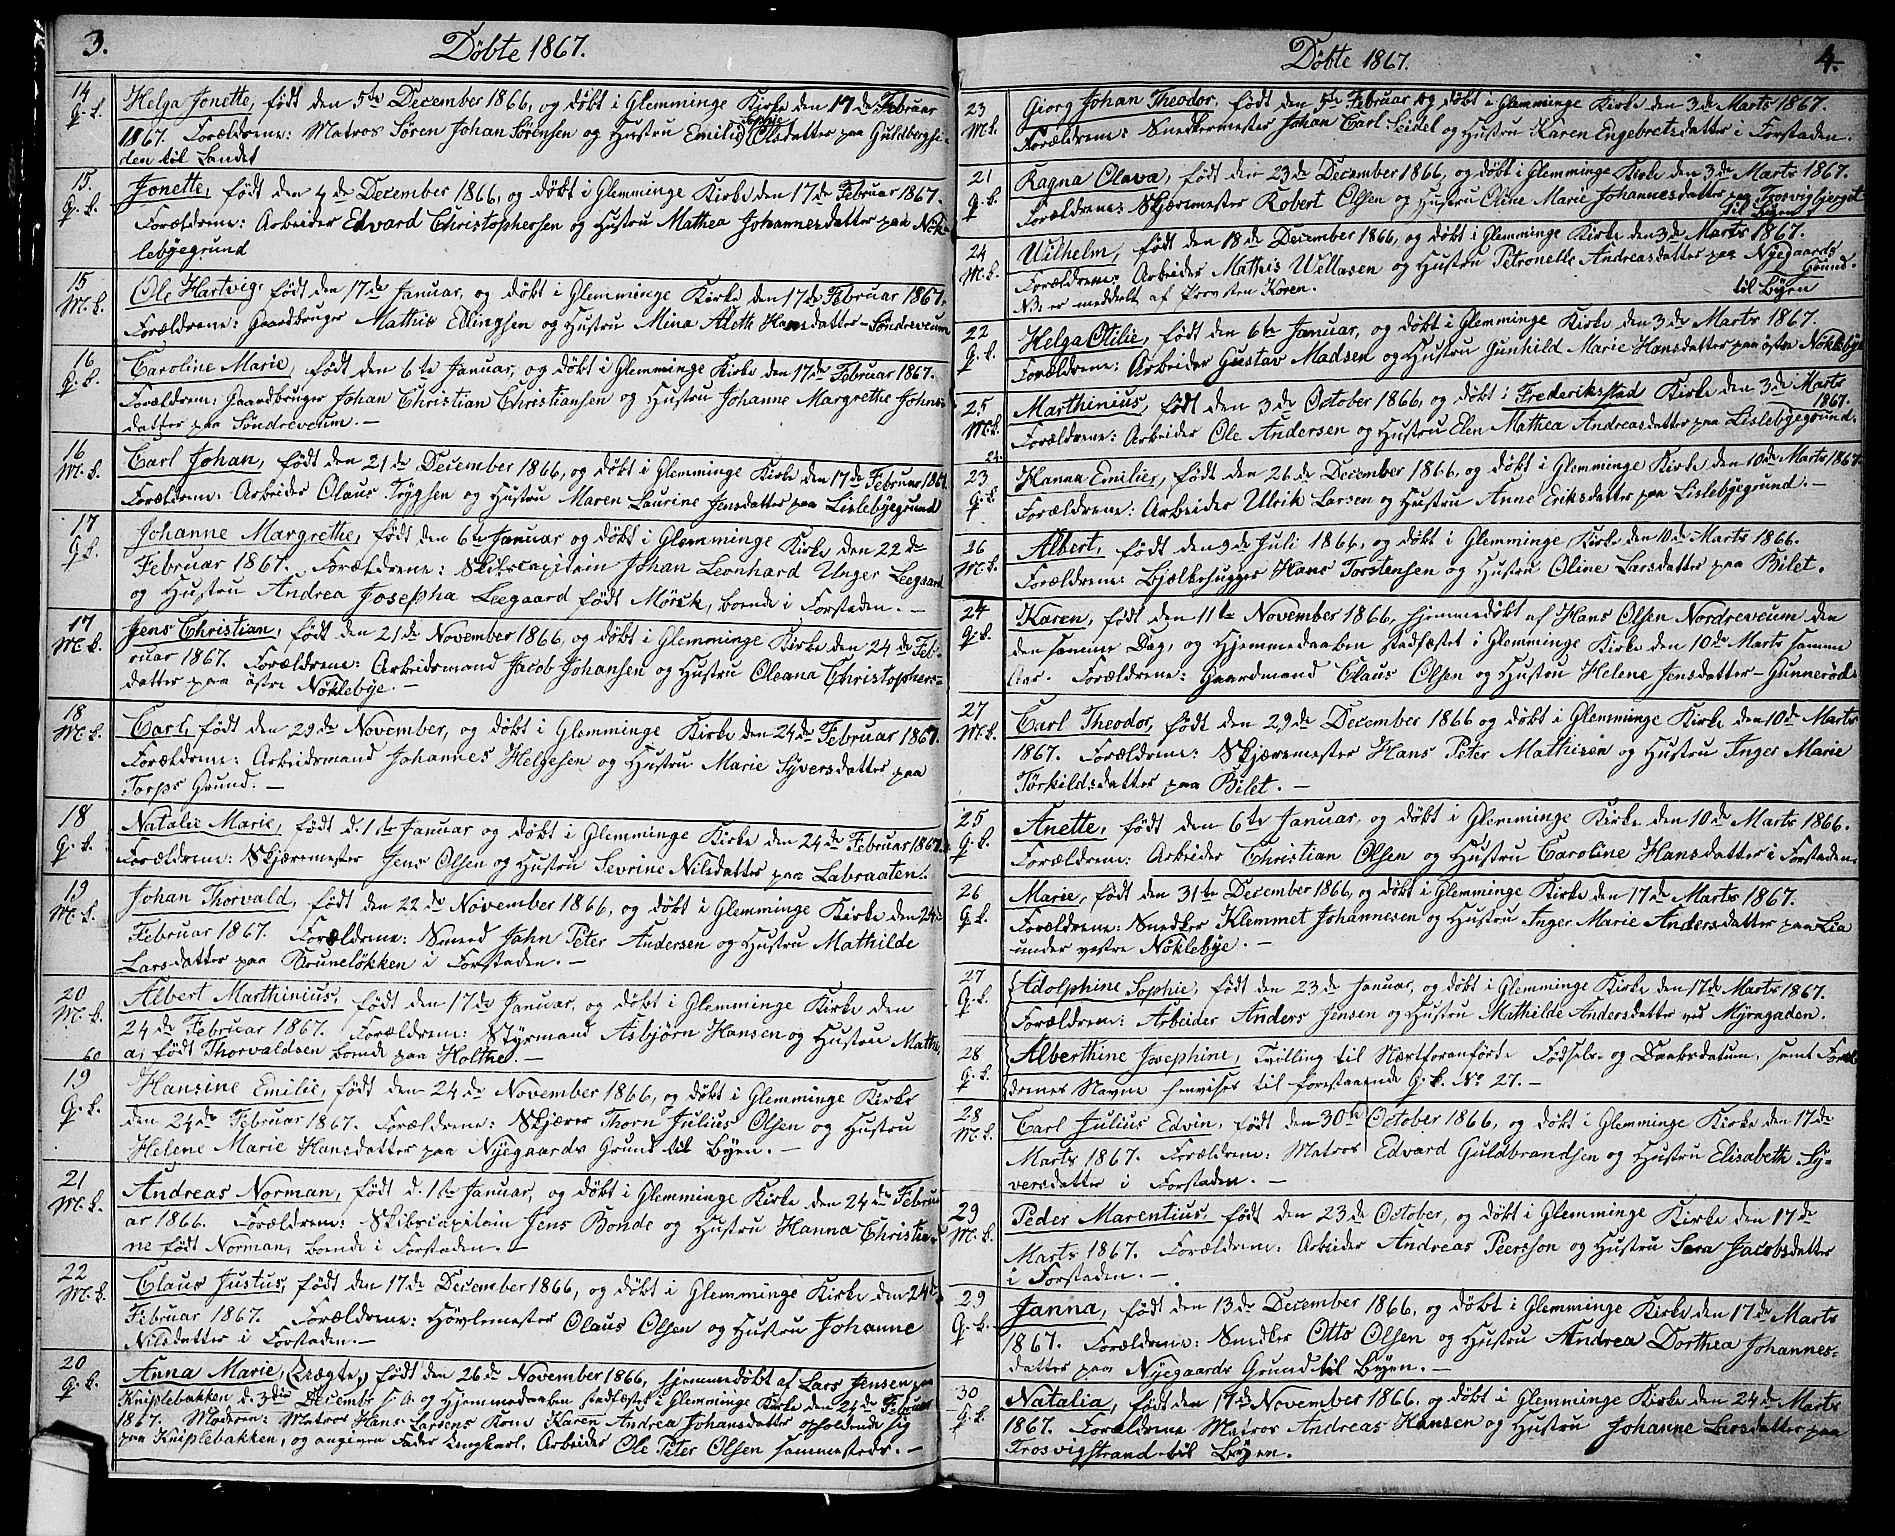 3.
Døbte 1867.
14
Q. K.
Helga Jonette, født den 5te December 1866, og døbt i Glemminge Kirke den 17de Februar
1867. Forældrene: Matros Søren Johan Sørensen og Hustru Emilie Sophie Olsdatter paa Guldbergsi-
den til Landet
15.
Q. K.
Jonette, født den 4de December 1866, og døbt i Glemminge Kirke den 17de Februar 1867.
Forældrene: Arbeider Edvard Christophersen og Hustru Mathea Johannesdatter paa Nök-
lebyegrund
15
M. K.
Ole Hartvig, født den 17de Januar, og døbt i Glemminge Kirke den 17de Februar 1867.
Forældrene: Gaardbruger Mathis Ellingsen og Hustru Mina Aleth Hansdatter - Söndreveum
16
Q. K.
Caroline Marie, født den 6te Januar, og døbt i Glemminge Kirke den 17de Februar 1867.
Forældrene: Gaardbruger Johan Christian Christiansen og Hustru Johanne Margrethe Johns-
datter paa Söndreveum. -
16
M. K.
Carl Johan, født den 21de December 1866, og døbt i Glemminge Kirke den 17de Februar 1867
Forældrene: Arbeider Olaus Trygsen og Hustru Maren Laurine Jensdatter paa Lislebyegrund
17
Q. K.
Johanne Margrethe, født den 6te Januar og døbt i Glemminge Kirke den 22de
Februar 1867. Forældrene: Skibscapitain Johan Leonhard Unger Leegaard
og Hustru Andrea Josepha Leegaard født Mørck, boende i Forstaden. -
17
M. K.
Jens Christian, født den 21de November 1866, og døbt i Glemminge Kirke den 24de Feb-
ruar 1867. Forældrene: Arbeidsmand Jacob Johansen og Hustru Oleana Christophers-
datter paa östre Nöklebye. -
18
M. K.
Carl, født den 29de November, og døbt i Glemminge Kirke den 24de Februar 1867.
Forældrene: Arbeidsmand Johannes Helgesen og Hustru Marie Syversdatter paa
Torps Grund. -
18
Q. K.
Natalie Marie, født d. 1te Januar og døbt i Glemminge Kirke den 24de Februar 1867.
Forældrene: Skjæremester Jens Olsen og Hustru Sevrine Nilsdatter paa Labraaten.
19
M. K.
Johan Thorvald, født den 22de November 1866, og døbt i Glemminge Kirke den 24de
Februar 1867. Forældrene: Smed John Peter Andersen og Hustru Mathilde
Larsdatter paa Bruneløkken i Forstaden. -
20
M. K.
Albert Marthinius, født den 17de Januar, og døbt i Glemminge Kirke den
24de Februar 1867. Forældrene: Styrmand Asbjørn Hansen og Hustru Mathe-
a, født Thorvaldsen boende paa Holthe. -
60
19
Q. K.
Hansine Emilie, født den 24de November 1866, og døbt i Glemminge Kirke
den 24de Februar 1867. Forældrene: Skjærer Thorn Julius Olsen og Hustru
Helene Marie Hansdatter paa Nyegaards Grund til Byen. -
21
M. K.
Andreas Norman, født d. 1te Januar, og døbt i Glemminge Kirke den 24de Febru
ar 1866. Forældrene: Skibscapitain Jens Bonde og Hustru Hanna Christia-
ne født Norman, boende i Forstaden. -
22
M. K.
Claus Justus, født den 17de December 1866, og døbt i Glemminge Kirke den 24de
Februar 1867. Forældrene: Høvlemester Olaus Olsen og Hustru Johanne
Nilsdatter i Forstaden. -
20
Q. K.
Anna Marie, (uægte,) født den 26de November 1866, hjemmedøbt af Lars Jensen paa
Kniplebakken d. 3die December s. A. og Hjemmedaaben stadfæstet i Glemminge Kirke den 24de Februar
1867. Moderen: Matros Hans Larsens Kone Karen Andrea Johansdatter opholdende sig
paa Kniplebakken, og angiven Fader Ungkarl, Arbeider Ole Peter Olsen sammesteds. -
4.
Døbte 1867.
23
M. K.
Giorg Johan Theodor, født den 5te Februar og døbt i Glemminge Kirke den 3de Marts 1867.
Forældrene: Snedkermester Johan Carl Seidel og Hustru Karen Engebretsdatter i Forstaden.
21
Q. K.
Ragna Olava, født den 23de December 1866, og døbt i Glemminge Kirke den 3de Marts 1867.
Forældrene: Skjæremester Robert Olsen og Hustru Oline Marie Johannesdatter paa Trosvigbjerget
til Byen
24
M. K.
Wilhelm, født den 18de December 1866, og døbt i Glemminge Kirke den 3de Marts 1867.
Forældrene: Arbeider Mathis Willasen og Hustru Petronelle Andreasdatter paa Nyegaards
Grund
N. er meddelt af Provsten Koren.
til Byen
22
Q. K.
Helga Otilie, født den 6te Januar, og døbt i Glemminge Kirke den 3de Marts 1867.
Forældrene: Arbeider Gustav Madsen og Hustru Gunhild Marie Hansdatter paa östre Nöklebye
25
M. K.
Marthinius, født den 3de October 1866, og døbt i Frederikstad Kirke den 3de Marts
1867.
Forældrene: Arbeider Ole Andersen og Hustru Elen Mathea Andreasdatter paa Lislebyegrund.
24.
23
Q. K.
Hanna Emilie, født den 26de December 1866, og døbt i Glemminge Kirke den 10de Marts 1867.
Forældrene: Arbeider Ulrik Larsen og Hustru Anne Eriksdatter paa Lislebyegrund. -
26
M. K.
Albert, født den 9de Juli 1866, og døbt i Glemminge Kirke den 10de Marts 1866.
Forældrene: Bjælkehugger Hans Torstensen og Hustru Oline Larsdatter paa Bilet.
24
Q. K.
Karen, født den 11te November 1866, hjemmedøbt af Hans Olsen Nordreveum den
den samme Dag, og Hjemmedaaben stadfæstet i Glemminge Kirke den 10de Marts samme
Aar. Forældrene: Gaardmand Claus Olsen og Hustru Helene Jensdatter - Gunnerød.
27
M. K.
Carl Theodor, født den 29de December 1866 og døbt i Glemminge Kirke den 10de Marts
1867. Forældrene: Skjæremester Hans Peter Mathisen og Hustru Inger Marie
Törkildsdatter paa Bilet. -
25
Q. K.
Anette, født den 6te Januar, og døbt i Glemminge Kirke den 10de Marts 1866.
Forældrene: Arbeider Christian Olsen og Hustru Caroline Hansdatter i Forstaden.
26
Q. K.
Marie, født den 31te December 1866, og døbt i Glemminge Kirke den 17de Marts 1867.
Forældrene: Snedker Klemmet Johannesen og Hustru Inger Marie Andersdatter paa Lia
under vestre Nöklebye. -
27
Q. K.
Adolphine Sophie, født den 23de Januar, og døbt i Glemminge Kirke den 17de Marts 1867.
Forældrene: Arbeider Anders Jensen og Hustru Mathilde Andersdatter ved Myragaden.
28
Q. K.
Alberthine Josephine, Tvilling til Næstforanførte Fødsels- og Daabsdatum, samt Foræl
drenes Navne henvises til forestaaende Q. K. No 27. -
28
M. K.
Carl Julius Edvin, født den 30te October 1866, og døbt i Glemminge Kirke den 17de
Marts 1867. Forældrene: Matros Edvard Guldbrandsen og Hustru Elisabeth Sy-
versdatter i Forstaden. -
29
M. K.
Peder Marentius, født den 23de October, og døbt i Glemminge Kirke den 17de
Marts 1867. Forældrene: Arbeider Andreas Peersson og Hustru Sara Jacobsdatter
i Forstaden. -
29
Q. K.
Janna, født den 13de December 1866, og døbt i Glemminge Kirke den 17de Marts
1867. Forældrene: Snedker Otto Olsen og Hustru Andrea Dorthea Johannes-
datter paa Nyegaards Grund til Byen. -
30
Q. K.
Natalia, født den 17de November 1866, og døbt i Glemminge Kirke den 24de Marts
1867. Forældrene Matros Andreas Hansen og Hustru Johanne Larsdatter paa
Trosvigstrand til Byen.